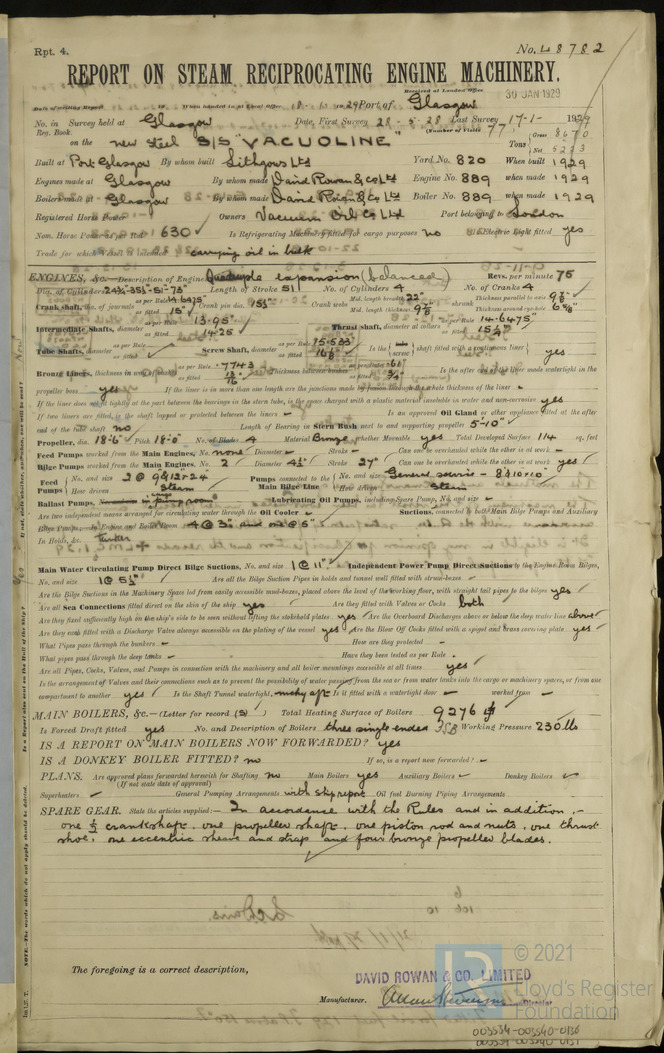 Rpt. 4. No. 48782
REPORT ON STEAM RECIPROCATING ENGINE MACHINERY.
Received at London Office 30 JAN 1929
Date of writing Report 19 When handed in at Local Office 18-1-1929 Port of Glasgow
No. in Reg. Book. Survey held at Glasgow Date, First Survey 28-5-28 Last Survey 17-1-1929
(Number of Visits 77)
on the new steel S/S "VACUOLINE" Tons Gross 8670 Net 5223
Built at Port Glasgow By whom built Lithgows Ltd Yard No. 820 When built 1929
Engines made at Glasgow By whom made David Rowan & Co Ltd Engine No. 889 when made 1929
Boilers made at Glasgow By whom made David Rowan & Co Ltd Boiler No. 889 when made 1929
Registered Horse Power Owners Vacuum Oil Co Ltd Port belonging to London
Nom. Horse Power as per Rule 630 Is Refrigerating Machinery fitted for cargo purposes no Is Electric Light fitted yes
Trade for which Vessel is intended carrying oil in bulk
ENGINES, &c.—Description of Engines Quadruple expansion (balanced) Revs. per minute 75
Dia. of Cylinders 24¾-35½-51-73" Length of Stroke 51 No. of Cylinders 4 No. of Cranks 4
Crank shaft, dia. of journals as per Rule 14.6475" as fitted 15" Crank pin dia. 15½" Crank webs Mid. length breadth 22" Mid. length thickness 9⅞" shrunk Thickness parallel to axis 9⅞" Thickness around eye-hole 6⅝"
Intermediate Shafts, diameter as per Rule 13.95" as fitted 14.25 Thrust shaft, diameter at collars as per Rule 14.6475" as fitted 15¼"
Tube Shafts, diameter as per Rule as fitted Screw Shaft, diameter as per Rule 15.533" as fitted 16⅛" Is the screw shaft fitted with a continuous liner yes
Bronze Liners, thickness in way of bushes as per Rule .7743 as fitted 13/16 Thickness between bushes as per Rule .60" as fitted ¾" Is the after end of the liner made watertight in the
propeller boss yes If the liner is in more than one length are the junctions made by fusion through the whole thickness of the liner -
If the liner does not fit tightly at the part between the bearings in the stern tube, is the space charged with a plastic material insoluble in water and non-corrosive yes
If two liners are fitted, is the shaft lapped or protected between the liners - Is an approved Oil Gland or other appliance fitted at the after
end of the tube shaft no Length of Bearing in Stern Bush next to and supporting propeller 5'-10"
Propeller, dia. 18'-6" Pitch 18'-0" No. of Blades 4 Material Bronze whether Moveable yes Total Developed Surface 114 sq. feet
Feed Pumps worked from the Main Engines, No. none Diameter - Stroke - Can one be overhauled while the other is at work -
Bilge Pumps worked from the Main Engines, No. 2 Diameter 4½" Stroke 27" Can one be overhauled while the other is at work yes
Feed Pumps No. and size 2 @ 9&12×24 How driven Steam Pumps connected to the Main Bilge Line No. and size General service - 8½×10×10" How driven steam
Ballast Pumps, in pump room Lubricating Oil Pumps, including Spare Pump, No. and size -
Are two independent means arranged for circulating water through the Oil Cooler Suctions, connected to both Main Bilge Pumps and Auxiliary
Bilge Pumps:—In Engine and Boiler Room 4 @ 3" and one @ 5"
In Holds, &c. tanker
Main Water Circulating Pump Direct Bilge Suctions, No. and size 1 @ 11" Independent Power Pump Direct Suctions to the Engine Room Bilges,
No. and size 1 @ 5½" Are all the Bilge Suction Pipes in holds and tunnel well fitted with strum-boxes -
Are the Bilge Suctions in the Machinery Space led from easily accessible mud-boxes, placed above the level of the working floor, with straight tail pipes to the bilges yes
Are all Sea Connections fitted direct on the skin of the ship yes Are they fitted with Valves or Cocks both
Are they fixed sufficiently high on the ship's side to be seen without lifting the stokehold plates yes Are the Overboard Discharges above or below the deep water line above
Are they each fitted with a Discharge Valve always accessible on the plating of the vessel yes Are the Blow Off Cocks fitted with a spigot and brass covering plate yes
What Pipes pass through the bunkers - How are they protected -
What pipes pass through the deep tanks - Have they been tested as per Rule -
Are all Pipes, Cocks, Valves, and Pumps in connection with the machinery and all boiler mountings accessible at all times yes
Is the arrangement of Valves and their connections such as to prevent the possibility of water passing from the sea or from water tanks into the cargo or machinery spaces, or from one
compartment to another yes Is the Shaft Tunnel watertight mchy aft Is it fitted with a watertight door - worked from -
MAIN BOILERS, &c.—(Letter for record (S)) Total Heating Surface of Boilers 9276 ft
Is Forced Draft fitted yes No. and Description of Boilers three single ended 3SB Working Pressure 230 lbs
IS A REPORT ON MAIN BOILERS NOW FORWARDED? yes
IS A DONKEY BOILER FITTED? no If so, is a report now forwarded? -
PLANS. Are approved plans forwarded herewith for Shafting no Main Boilers yes Auxiliary Boilers - Donkey Boilers
(If not state date of approval)
Superheaters - General Pumping Arrangements with ship report Oil fuel Burning Piping Arrangements
SPARE GEAR. State the articles supplied:— In accordance with the Rules and in addition,-
one ½ crankshaft, one propeller shaft, one piston rod and nuts, one thrust
shoe, one eccentric sheave and strap and four bronze propeller blades.
The foregoing is a correct description,
DAVID ROWAN & CO. LIMITED
Manufacturer. Director
© 2021
Lloyd's Register
Foundation
003534-003540-0136